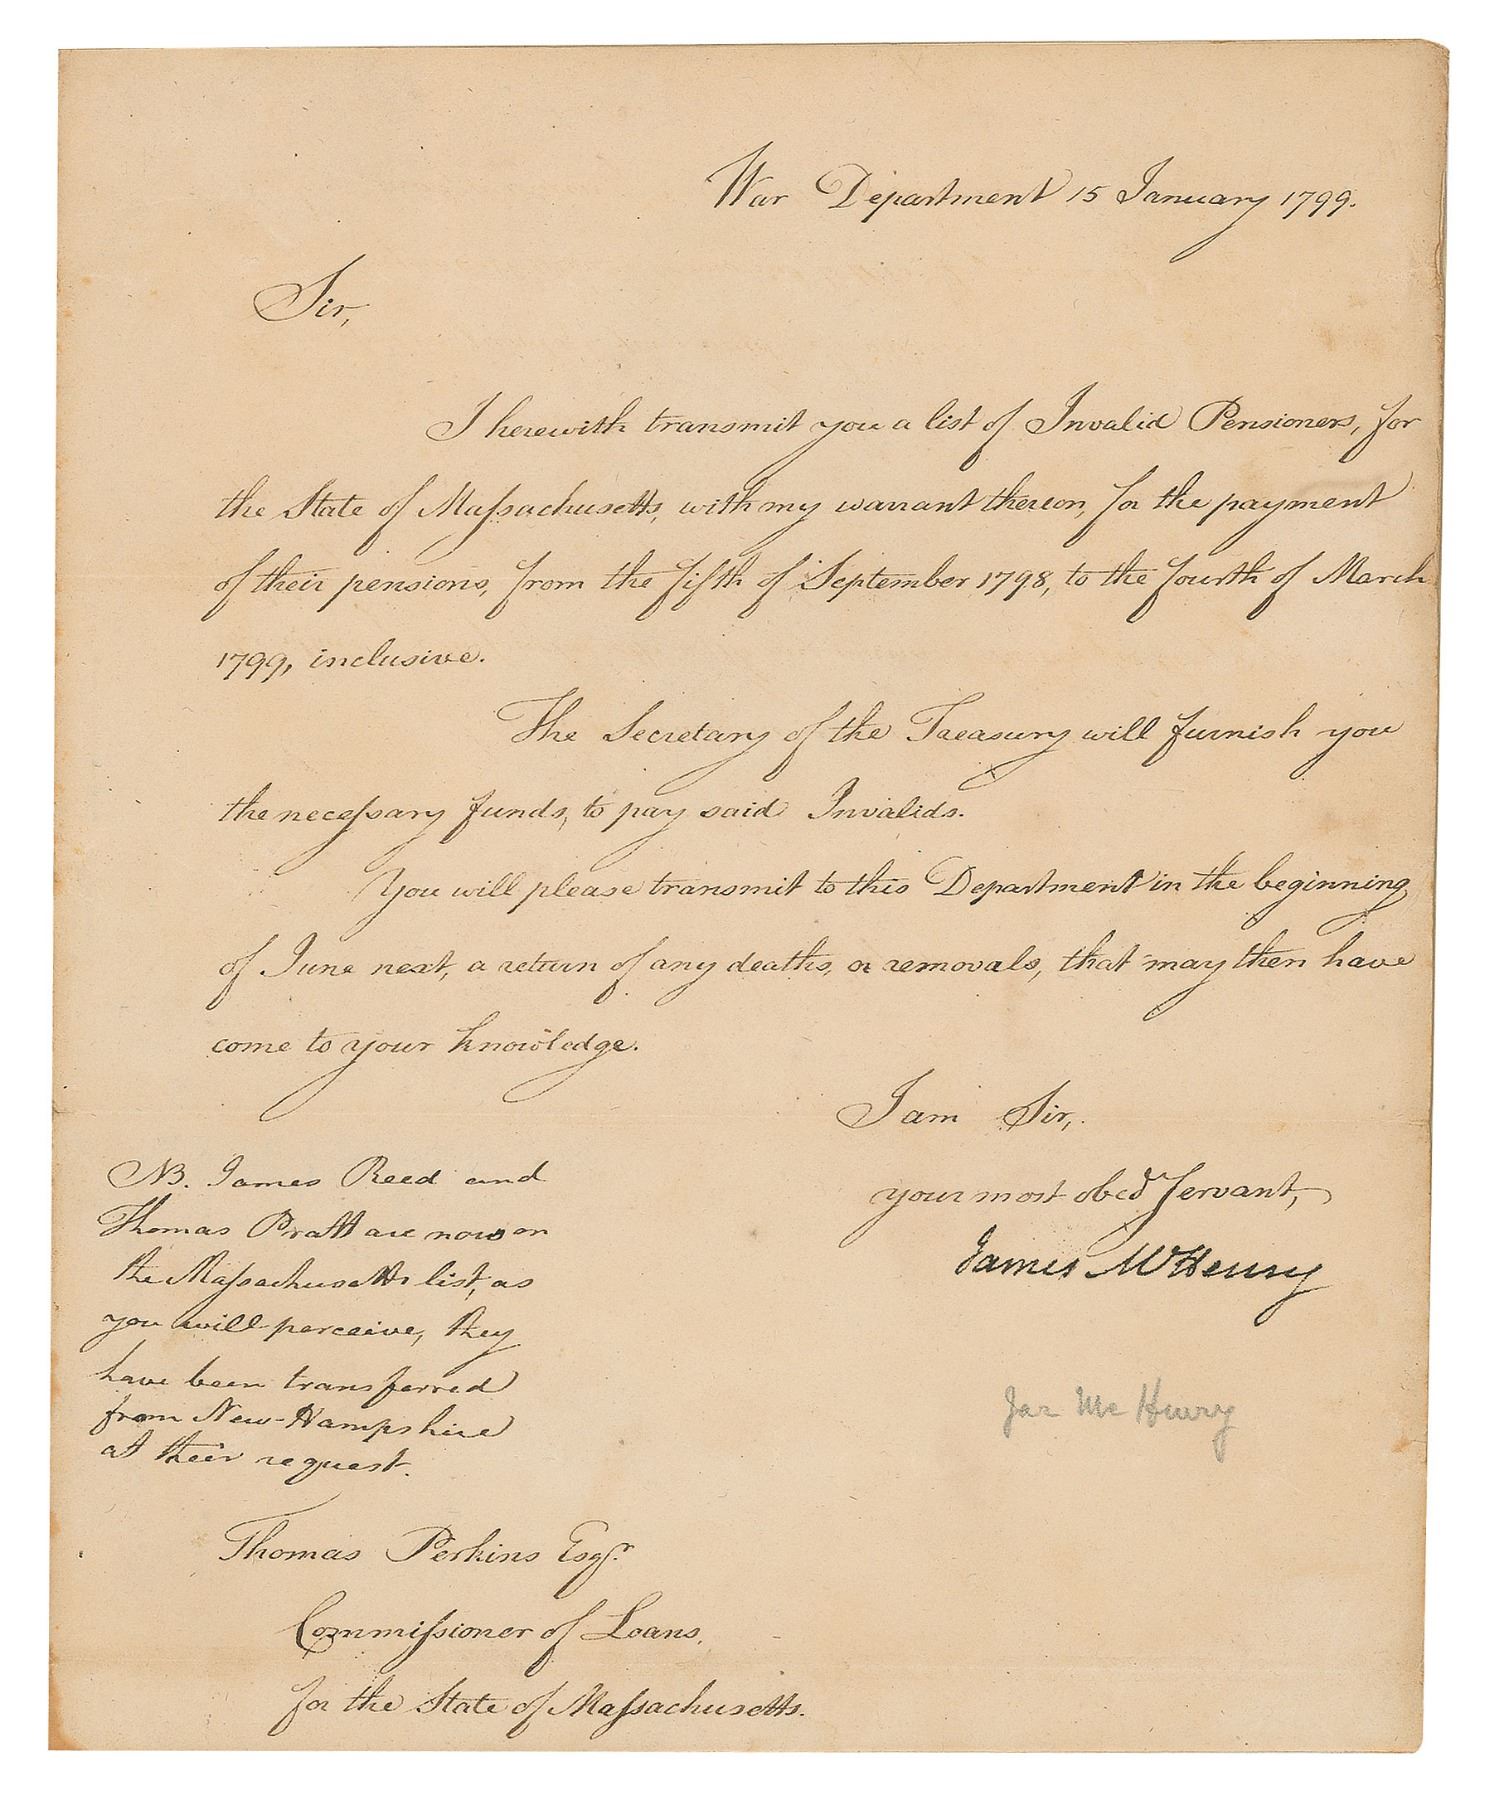 War Department 15 January 1799.
Sir,
I herewith transmit you a list of Invalid Pensioners, for
the State of Maſsachusetts, with my warrant thereon, for the payment
of their pensions, from the fifth of September 1798, to the fourth of March
1799, inclusive.
The Secretary of the Treasury will furnish you
the neceſsary funds, to pay said Invalids.
You will please transmit to this Department in the beginning
of June next, a return of any deaths, or removals, that may then have
come to your knowledge.
I am Sir,
your most obed Servant,
James McHenry
Jas McHenry
NB. James Reed and
Thomas Pratt are now on
the Maſsachusetts list, as
you will perceive, they
have been transferred
from New-Hampshire
at their request.
Thomas Perkins Esqr.
Commiſsioner of Loans,
for the State of Maſsachusetts.